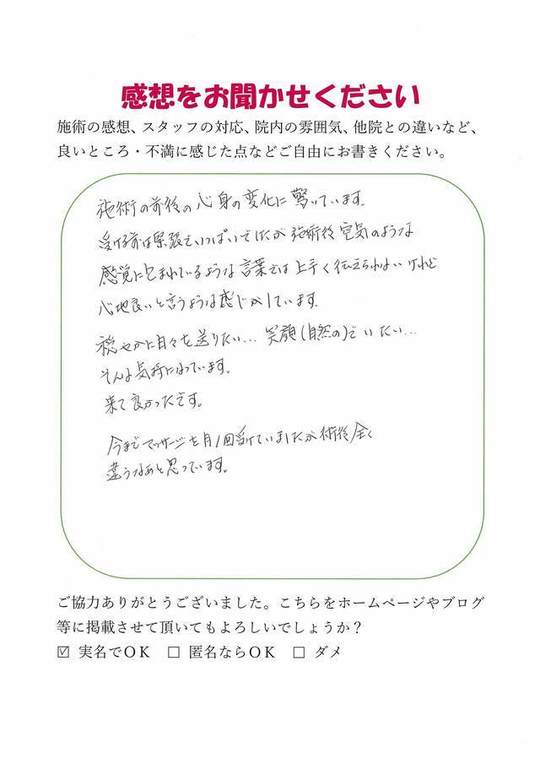 感想をお聞かせください
施術の感想、スタッフの対応、院内の雰囲気、他院との違いなど、
良いところ・不満に感じた点などご自由にお書きください。
施術の前後の心身の変化に驚いています。
受ける前は緊張でいっぱいでしたが施術後空気のような
感覚に包まれているような言葉では上手く伝えられないけれど
心地良いと言うような感じがしています。
穏やかに日々を送りたい… 笑顔(自然の)でいたい…
そんな気持になっています。
来て良かったです。
今までマッサージを月1回受けていましたが術後全く
違うなあと思っています。
ご協力ありがとうございました。こちらをホームページやブログ
等に掲載させて頂いてもよろしいでしょうか?
☑ 実名でOK □ 匿名ならOK □ ダメ